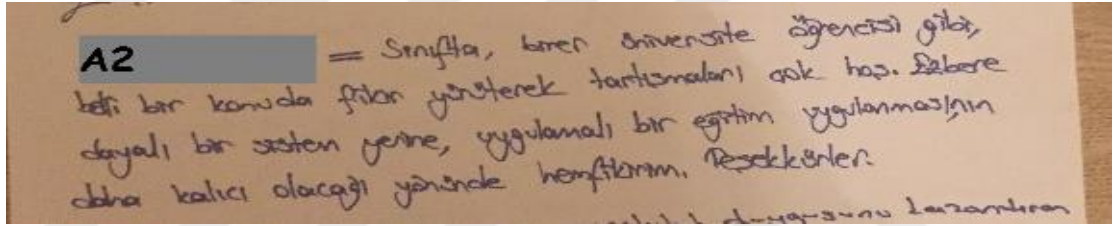 A2 = Sınıfta, birer üniversite öğrencisi gibi,
belli bir konuda fikir yürüterek tartışmaları çok hoş. Ezbere
dayalı bir sistem yerine, uygulamalı bir eğitim uygulanmasının
daha kalıcı olacağı yönünde hemfikirim. Teşekkürler.
duygusunu kazandıran